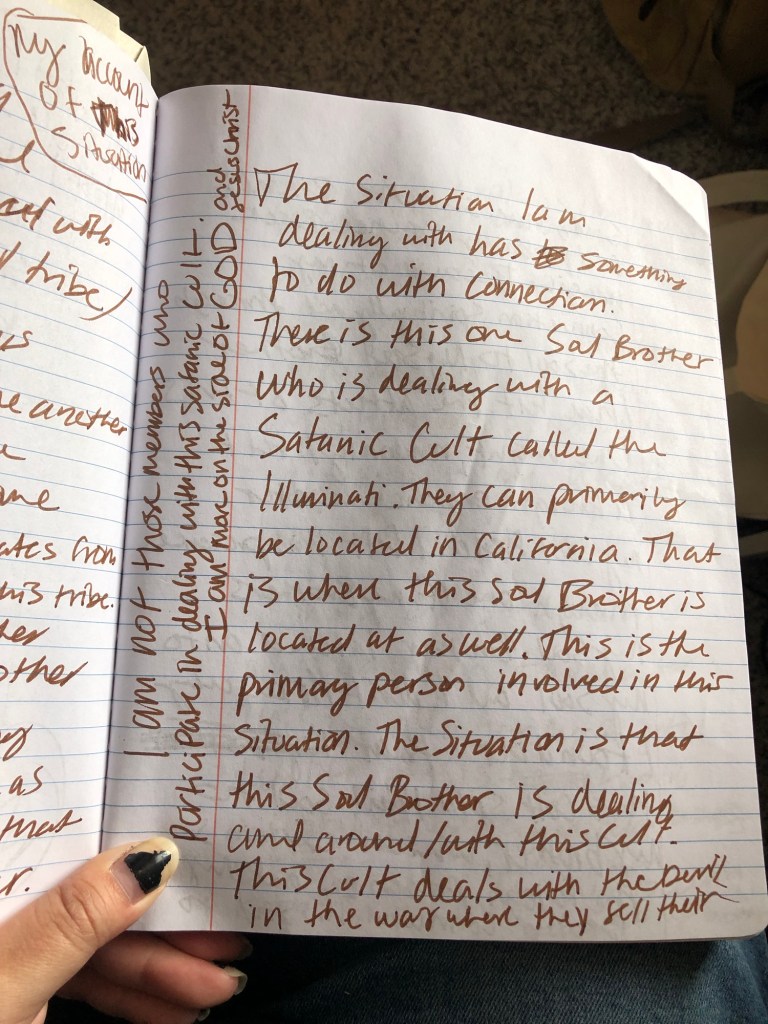 My account
of this
situation
ced with
tribe)
us
e another
ame
ates from
this tribe.
other
as
that
r.
I am not those members who
participate in dealing with this Satanic Cult.
I am more on the side of GOD and
Jesus Christ
The Situation I am
dealing with has something
to do with Connection.
There is this one Soul Brother
who is dealing with a
Satanic Cult called the
Illuminati. They can primarily
be located in California. That
is where this Soul Brother is
located at as well. This is the
primary person involved in this
situation. The Situation is that
this Soul Brother is dealing
and around/with this Cult.
This Cult deals with the Devil
in the way where they sell their